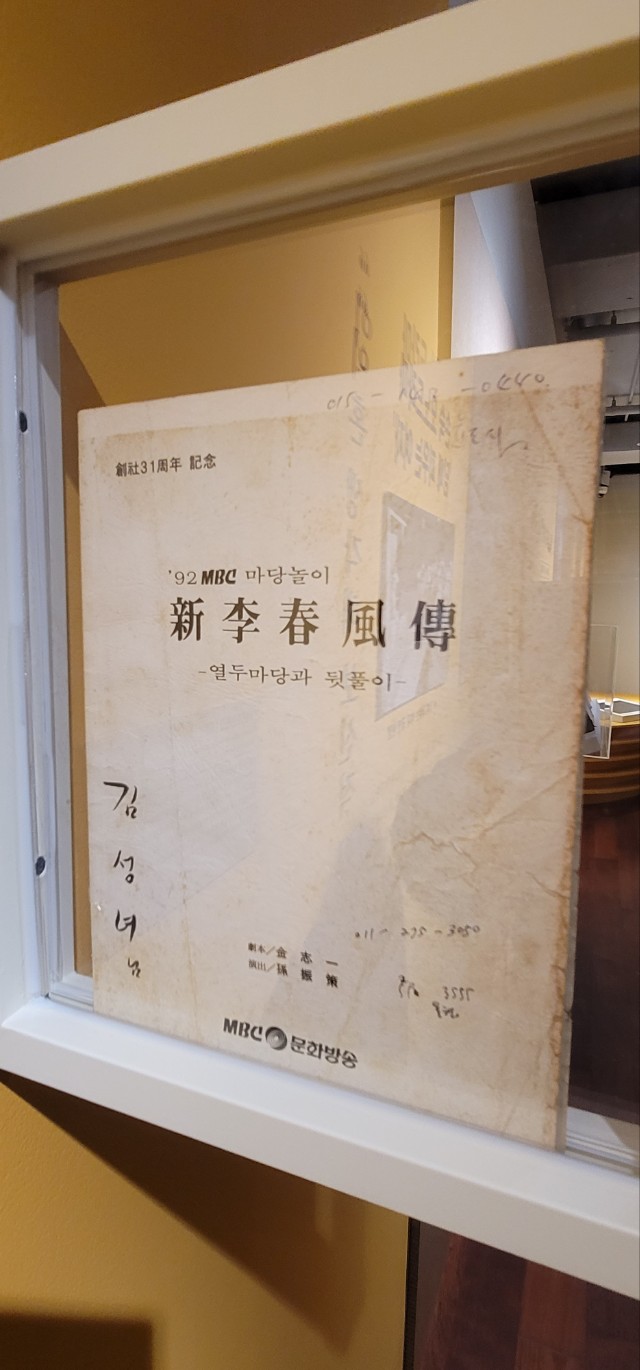 創社31周年 記念
'92 MBC 마당놀이
新李春風傳
-열두마당과 뒷풀이-
김성녀님
011-275-3050
劇本/金志一
演出/孫振策
3555
MBC 문화방송